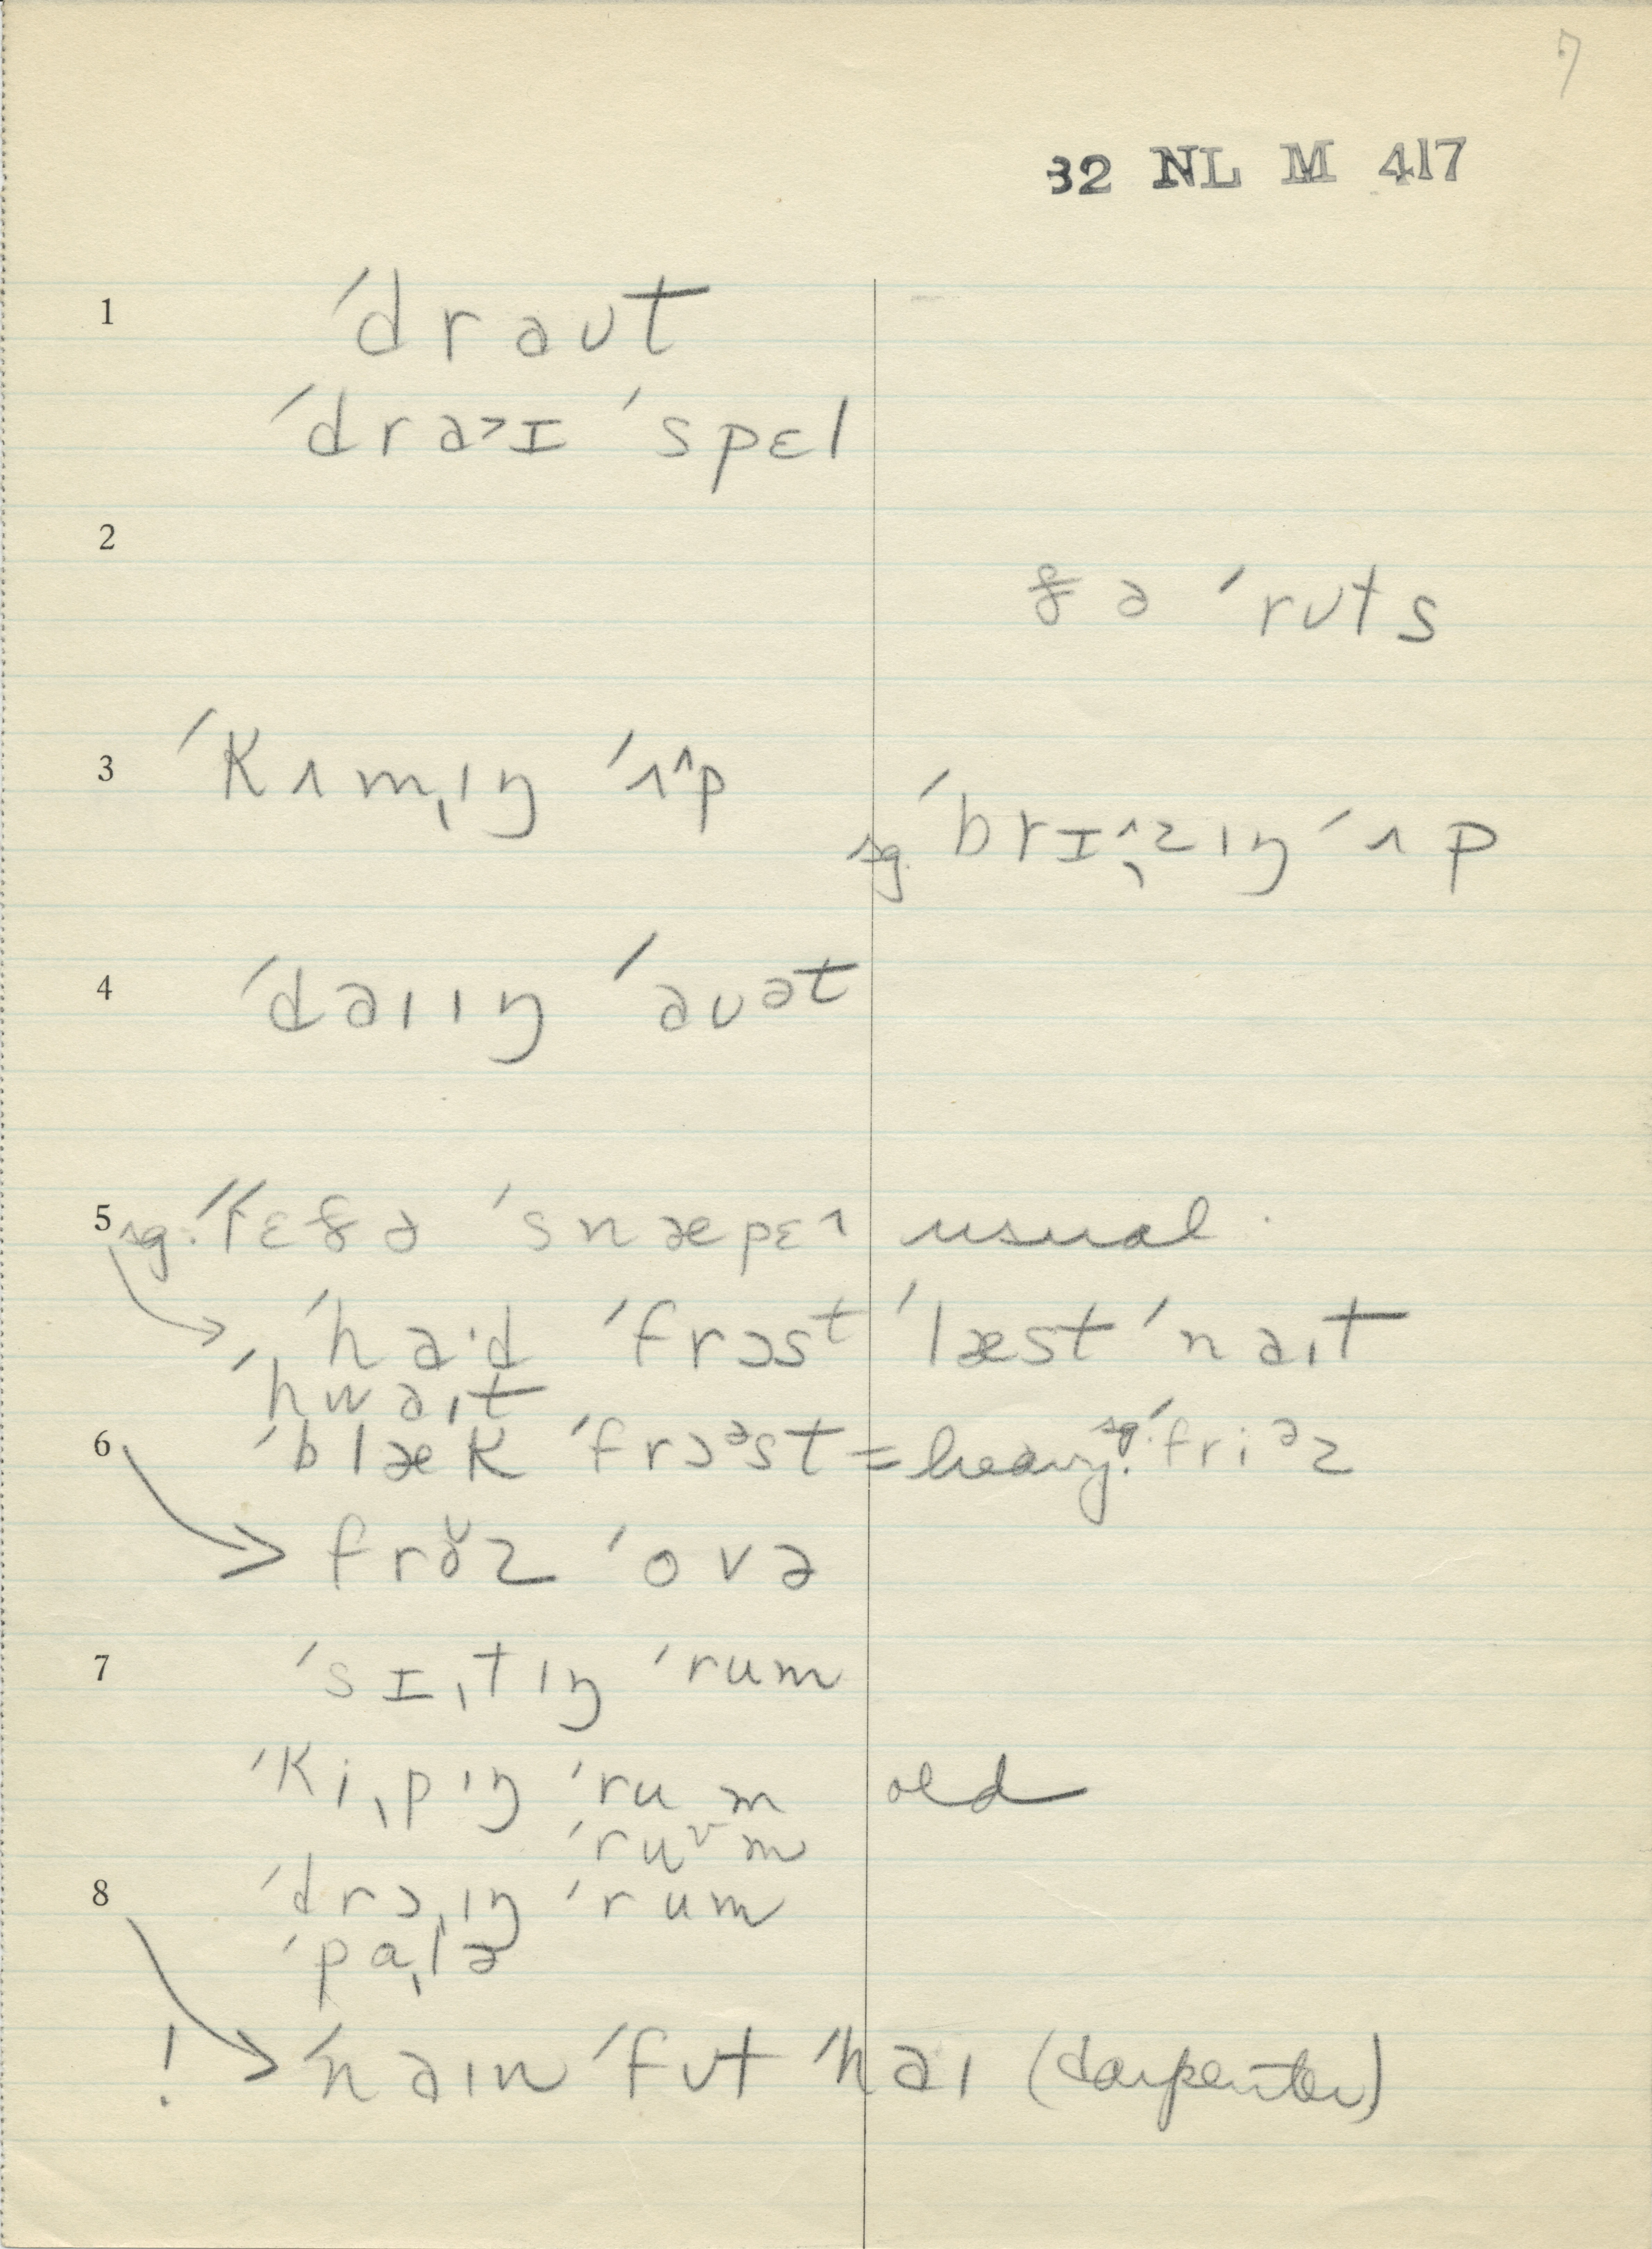 7
32 NL M 417
1 ˈdraʊt
ˈdra˃ɪ ˈspɛl
2
ðə ˈrʊts
3 ˈkʌmˌɪŋ ˈʌ^p sg. ˈbrɪ^ˌzɪŋ ˈʌp
4 ˈdaɪɪŋ ˈaʊət
5 sg. usual
ˈhaˑd ˈfrɔst ˈlæst ˈnaɪt
ˈhwaɪt
6 ˈblæk ˈfrɔəst = heavy. sg. ˈfriəz
ˈovə
7 ˈsɪˌtɪŋ ˈrum
ˈkiˌpɪŋ ˈrum old
ˈruᵛm
8 ˈdrɔˌɪŋ ˈrum
ˈpɑˌlə
! ˈnaɪn ˈfʊt ˈhaɪ (carpenter)